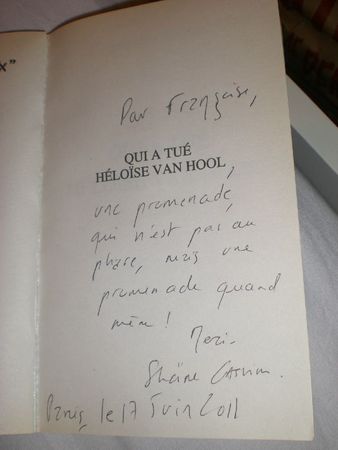 x"
Par Françoise,
QUI A TUÉ
HÉLOÏSE VAN HOOL
une promenade,
qui n'est pas au
phare, mais une
promenade quand
même !
Merci.
Paris, le 17 Juin 2011